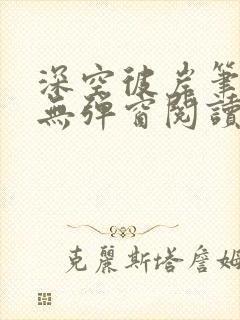 深空彼岸筆
無彈窗閱讀
克麗斯塔詹姆